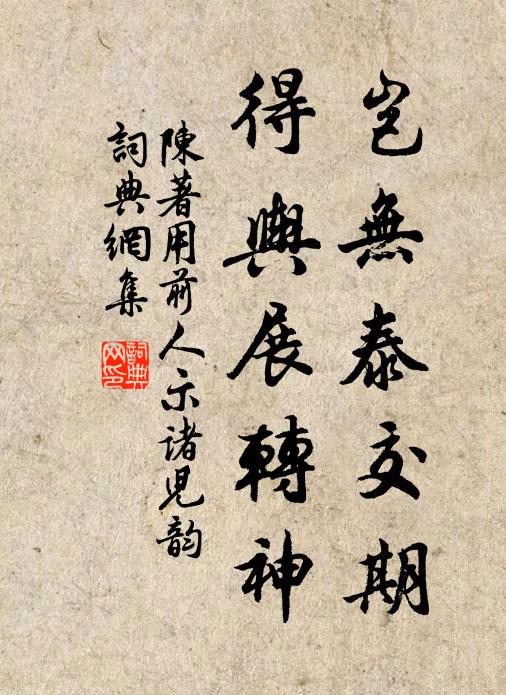 豈無泰交期
得輿展轉神
陳著用前人示諸兒韵
詞典網集
詞典网印